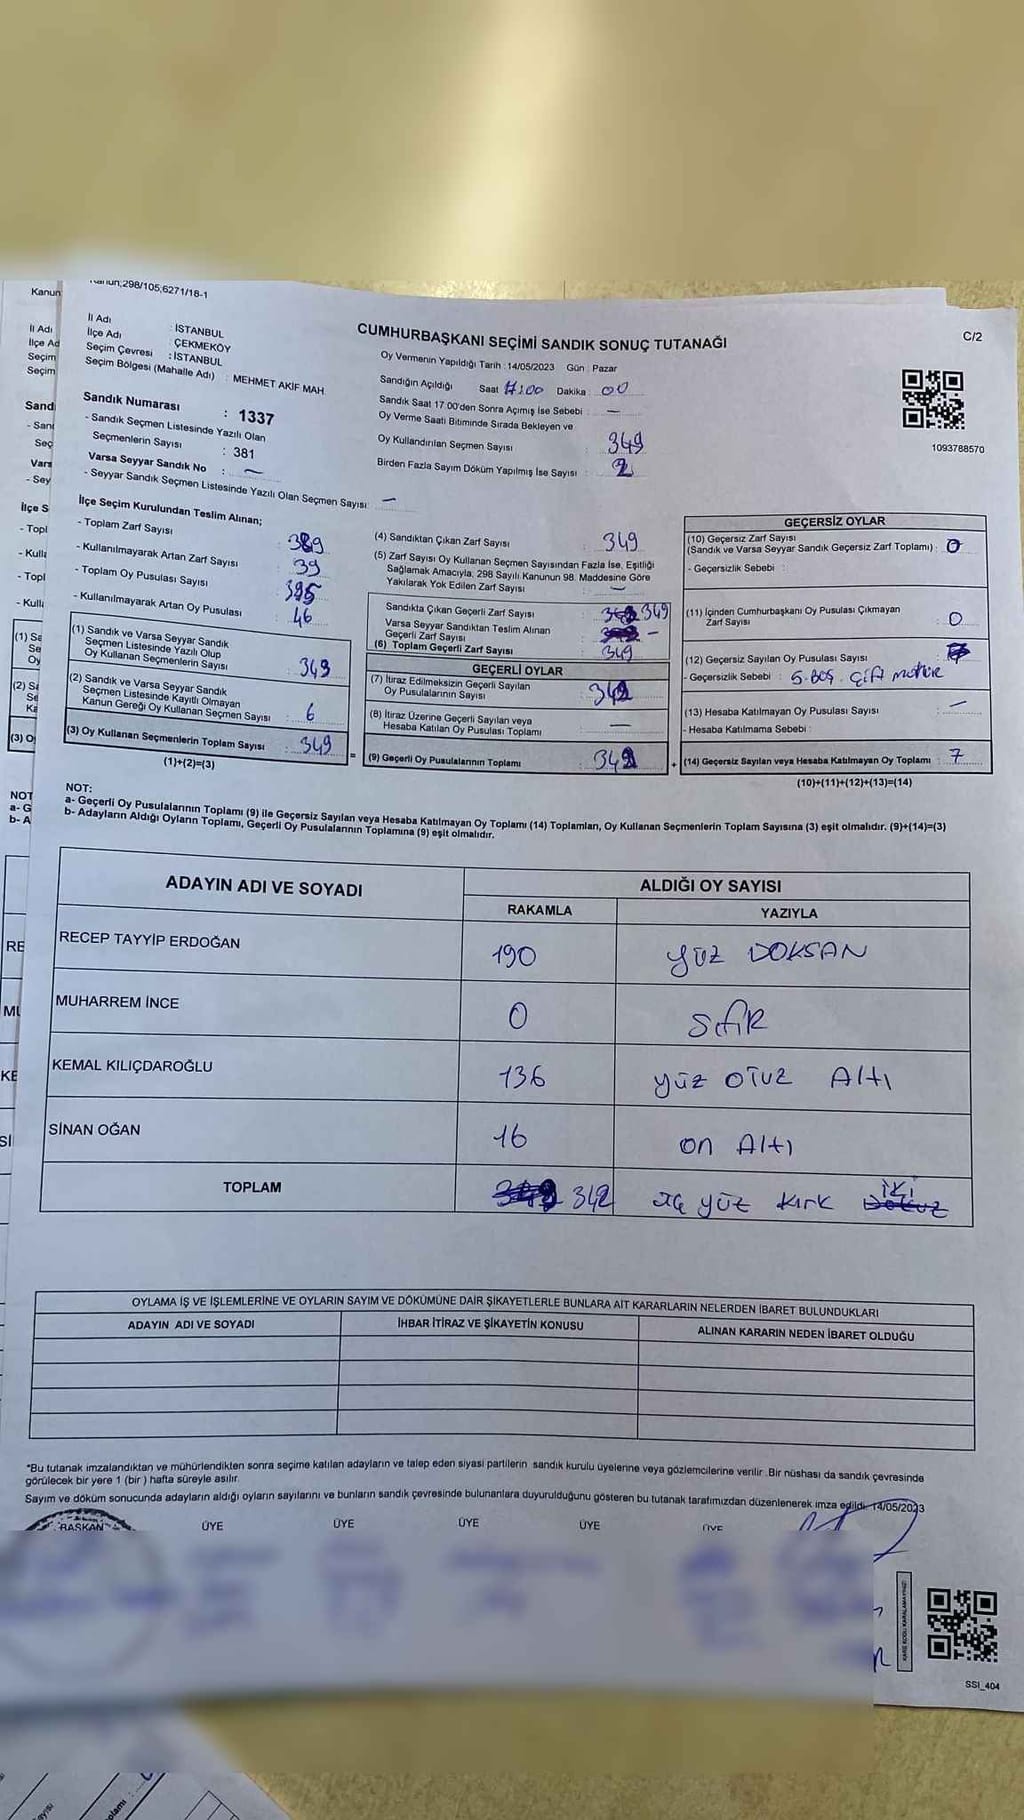 Kanun;298/105;6271/18-1
İl Adı : İSTANBUL
İlçe Adı : ÇEKMEKÖY
Seçim Çevresi : İSTANBUL
Seçim Bölgesi (Mahalle Adı) : MEHMET AKİF MAH.
Sandık Numarası : 1337
- Sandık Seçmen Listesinde Yazılı Olan
Seçmenlerin Sayısı : 381
Varsa Seyyar Sandık No : —
- Seyyar Sandık Seçmen Listesinde Yazılı Olan Seçmen Sayısı: —
CUMHURBAŞKANI SEÇİMİ SANDIK SONUÇ TUTANAĞI
Oy Vermenin Yapıldığı Tarih : 14/05/2023 Gün : Pazar
Sandığın Açıldığı Saat 17:00 Dakika : 00
Sandık Saat 17:00'den Sonra Açımış İse Sebebi : —
Oy Verme Saati Bitiminde Sırada Bekleyen ve
Oy Kullandırılan Seçmen Sayısı : 349
Birden Fazla Sayım Döküm Yapılmış İse Sayısı : 2
C/2
1093788570
İlçe Seçim Kurulundan Teslim Alınan;
- Toplam Zarf Sayısı : 389
- Kullanılmayarak Artan Zarf Sayısı : 39
- Toplam Oy Pusulası Sayısı : 395
- Kullanılmayarak Artan Oy Pusulası : 46
(1) Sandık ve Varsa Seyyar Sandık
Seçmen Listesinde Yazılı Olup
Oy Kullanan Seçmenlerin Sayısı : 343
(2) Sandık ve Varsa Seyyar Sandık
Seçmen Listesinde Kayıtlı Olmayan
Kanun Gereği Oy Kullanan Seçmen Sayısı : 6
(3) Oy Kullanan Seçmenlerin Toplam Sayısı : 349
(1)+(2)=(3)
(4) Sandıktan Çıkan Zarf Sayısı : 349
(5) Zarf Sayısı Oy Kullanan Seçmen Sayısından Fazla İse, Eşitliği
Sağlamak Amacıyla; 298 Sayılı Kanunun 98. Maddesine Göre
Yakılarak Yok Edilen Zarf Sayısı : —
Sandıkta Çıkan Geçerli Zarf Sayısı : 349
Varsa Seyyar Sandıktan Teslim Alınan
Geçerli Zarf Sayısı : —
(6) Toplam Geçerli Zarf Sayısı : 349
GEÇERLİ OYLAR
(7) İtiraz Edilmeksizin Geçerli Sayılan
Oy Pusulalarının Sayısı : 342
(8) İtiraz Üzerine Geçerli Sayılan veya
Hesaba Katılan Oy Pusulası Toplamı : —
= (9) Geçerli Oy Pusulalarının Toplamı : 342
GEÇERSİZ OYLAR
(10) Geçersiz Zarf Sayısı
(Sandık ve Varsa Seyyar Sandık Geçersiz Zarf Toplamı) : 0
- Geçersizlik Sebebi :
(11) İçinden Cumhurbaşkanı Oy Pusulası Çıkmayan
Zarf Sayısı : 0
(12) Geçersiz Sayılan Oy Pusulası Sayısı : 7
- Geçersizlik Sebebi : 5-BOŞ. Çift mühür
(13) Hesaba Katılmayan Oy Pusulası Sayısı : —
- Hesaba Katılmama Sebebi :
+ (14) Geçersiz Sayılan veya Hesaba Katılmayan Oy Toplamı : 7
(10)+(11)+(12)+(13)=(14)
NOT:
a- Geçerli Oy Pusulalarının Toplamı (9) ile Geçersiz Sayılan veya Hesaba Katılmayan Oy Toplamı (14) Toplamları, Oy Kullanan Seçmenlerin Toplam Sayısına (3) eşit olmalıdır. (9)+(14)=(3)
b- Adayların Aldığı Oyların Toplamı, Geçerli Oy Pusulalarının Toplamına (9) eşit olmalıdır.
ADAYIN ADI VE SOYADI
ALDIĞI OY SAYISI
RAKAMLA YAZIYLA
RECEP TAYYİP ERDOĞAN 190 YÜZ DOKSAN
MUHARREM İNCE 0 SIFIR
KEMAL KILIÇDAROĞLU 136 YÜZ OTUZ ALTI
SİNAN OĞAN 16 ON ALTI
TOPLAM 349 342 ÜÇ YÜZ KIRK DOKUZ İKİ
OYLAMA İŞ VE İŞLEMLERİNE VE OYLARIN SAYIM VE DÖKÜMÜNE DAİR ŞİKAYETLERLE BUNLARA AİT KARARLARIN NELERDEN İBARET BULUNDUKLARI
ADAYIN ADI VE SOYADI İHBAR İTİRAZ VE ŞİKAYETİN KONUSU ALINAN KARARIN NEDEN İBARET OLDUĞU
*Bu tutanak imzalandıktan ve mühürlendikten sonra seçime katılan adayların ve talep eden siyasi partilerin sandık kurulu üyelerine veya gözlemcilerine verilir. Bir nüshası da sandık çevresinde
görülecek bir yere 1 (bir ) hafta süreyle asılır.
Sayım ve döküm sonucunda adayların aldığı oyların sayılarını ve bunların sandık çevresinde bulunanlara duyurulduğunu gösteren bu tutanak tarafımızdan düzenlenerek imza edildi. 14/05/2023
BAŞKAN ÜYE ÜYE ÜYE ÜYE ÜYE
KARE KODU KARALAMAYINIZ!
SSI_404